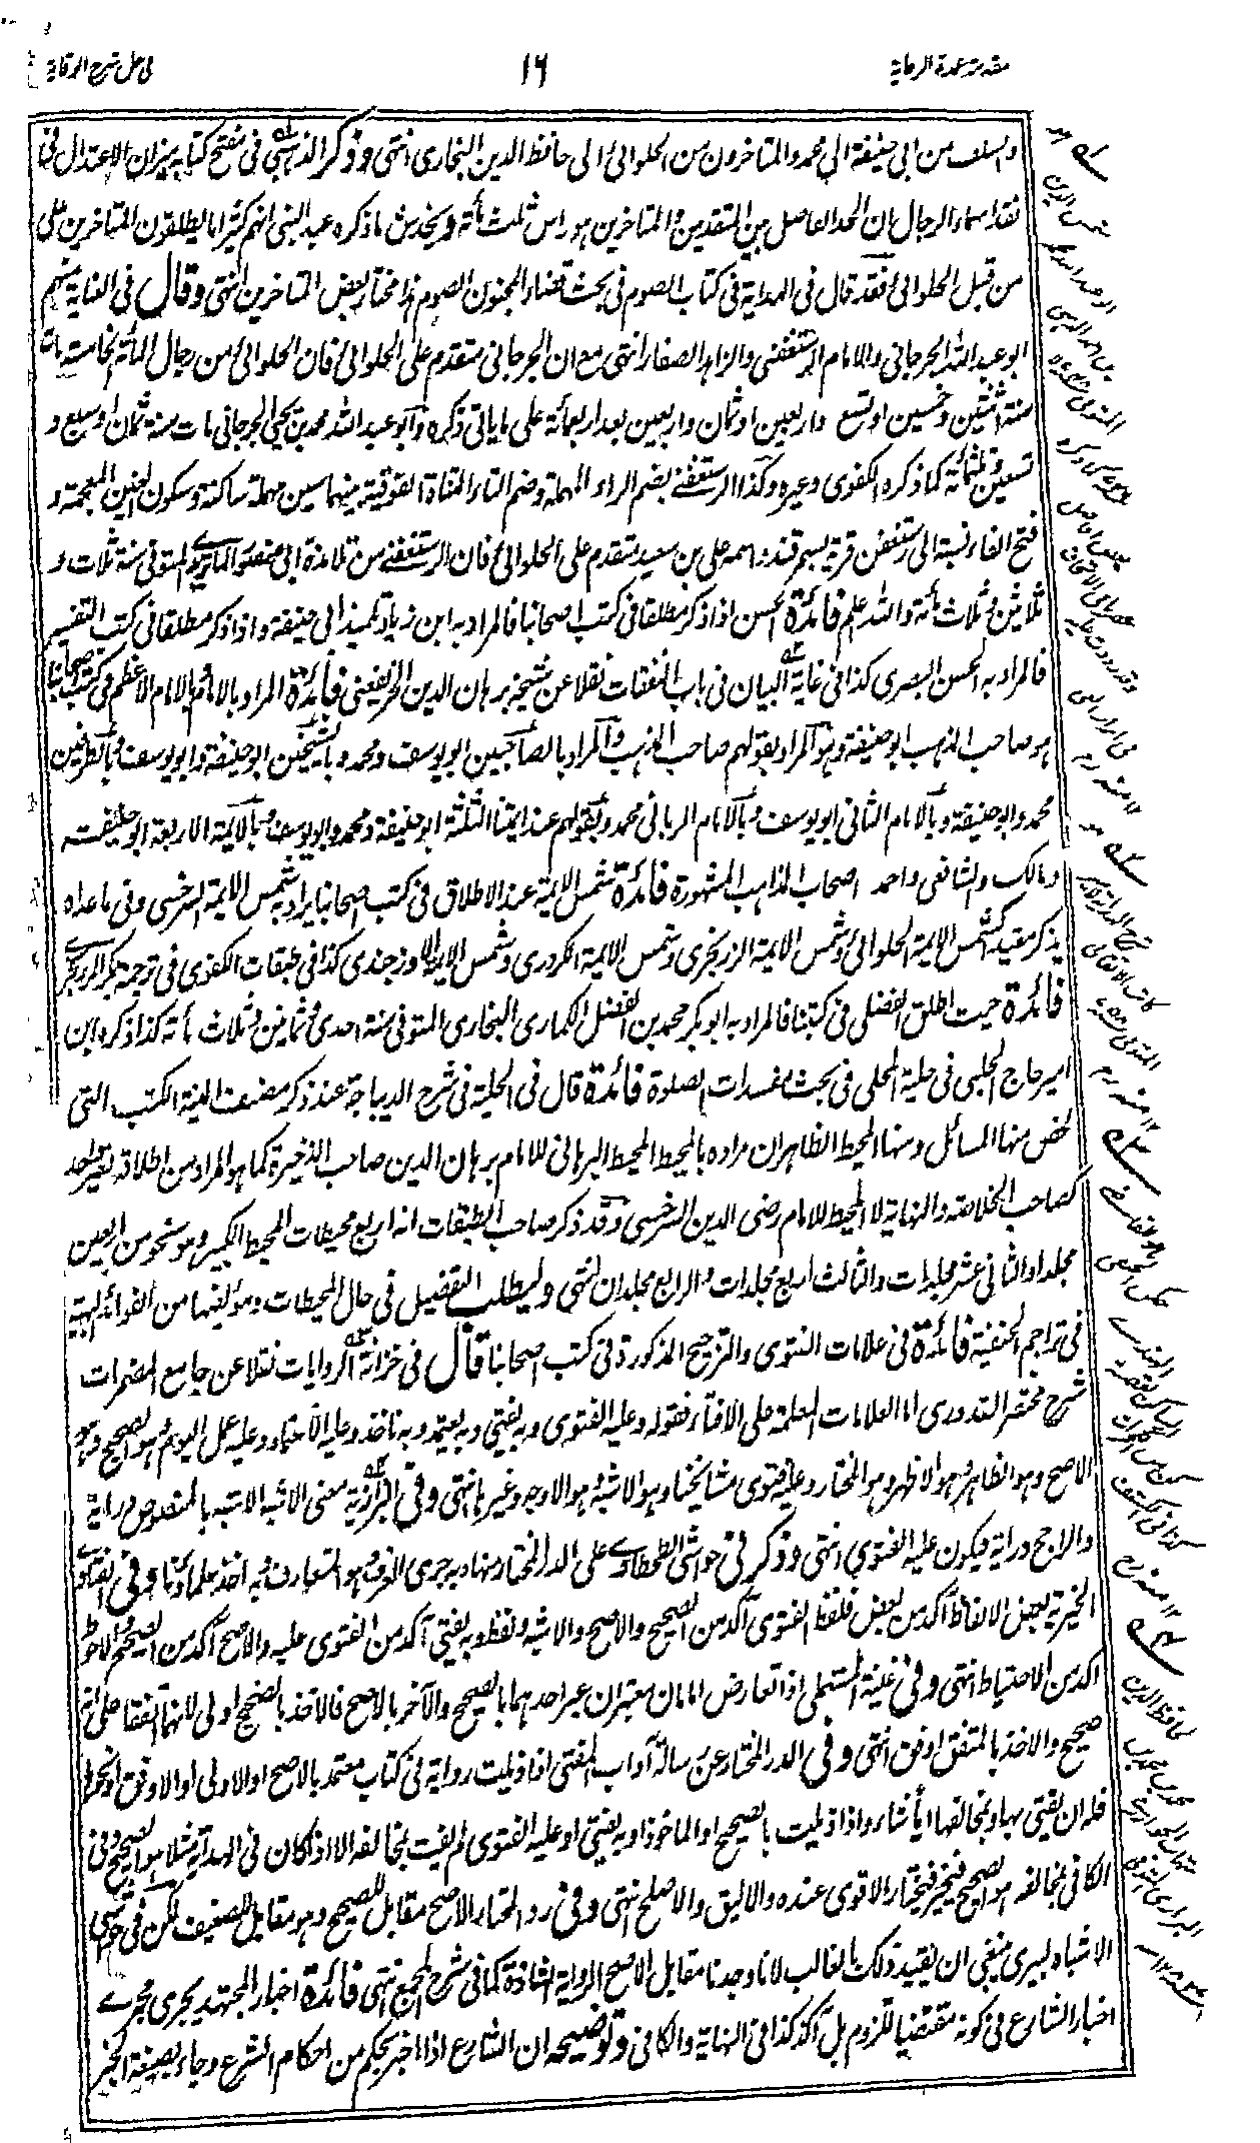 مقدمة عمدة الرعاية
١٦
في حل شرح الوقاية
والسلف من ابى حنيفة الى محمد والمتاخرون من الحلوائى الى حافظ الدين البخارى انتهى وذكر الذهبى فى مفتتح كتابه ميزان الاعتدال فى
نقد اسماء الرجال ان الحد الفاصل بين المتقدمين والمتاخرين هو راس ثلث مأتة ويخدش ما ذكره عبد النبى انهم كثيرا ما يطلقون المتاخرين على
من قبل الحلوائى فقد قال فى الهداية فى كتاب الصوم فى بحث قضاء المجنون الصوم هذا مختار بعض المتاخرين انتهى وقال فى العناية منهم
ابو عبد الله الجرجانى والامام الرستغفنى والزاهد الصفار انتهى مع ان الجرجانى متقدم على الحلوائى فان الحلوائى من رجال المأتة الخامسة مات
سنة اثنتين وخمسين او تسع واربعين او ثمان واربعين بعد اربعمائة على ما ياتى ذكره وابو عبد الله محمد بن يحيى الجرجانى مات سنة ثمان او سبع و
تسعين وثلثمائة كما ذكره الكفوى وغيره وكذا الرستغفنے بضم الراء المهملة وضم التاء المثناة الفوقية بينهما سين مهملة ساكنة وسكون الغين المعجمة و
فتح الفاء نسبة الى رستغفن قرية بسمرقند اسمه على بن سعيد متقدم على الحلوائى فان الرستغفنے من تلامذة ابى منصور الماتريدے المتوفى سنة ثلاث و
ثلاثين وثلاث مأتة والله اعلم فائدة الحسن اذا ذكر مطلقا فى كتب اصحابنا فالمراد به ابن زياد تلميذ ابى حنيفة واذا ذكر مطلقا فى كتب التفسير
فالمراد به الحسن البصرى كذا فى غاية البيان فى باب النفقات نقلا عن شيخه برهان الدين الخريفعنى فائدة المراد بالامام بالامام الاعظم فى كتب اصحابنا
هو صاحب المذهب ابو حنيفة وهو المراد بقولهم صاحب المذهب والمراد بالصاحبين ابو يوسف ومحمد وبالشيخين ابو حنيفة وابو يوسف وبالطرفين
محمد وابو حنيفة وبالامام الثانى ابو يوسف وبالامام الربانى محمد وبقولهم عند ايمتنا الثلثة ابو حنيفة ومحمد وابو يوسف وبالايمة الاربعة ابو حنيفة
ومالك والشافعى واحمد اصحاب المذاهب المشهورة فائدة شمس الايمة عند الاطلاق فى كتب اصحابنا يراد به شمس الايمة السرخسى وفى ما عداه
يذكر مقيدا كشمس الايمة الحلوائى وشمس الايمة الزرنجرى وشمس الايمة الكردرى وشمس الايمة الاوزجندى كذا فى طبقات الكفوى فى ترجمة بكر الزرنجرے
فائدة حيث اطلق الفضلى فى كتبنا فالمراد به ابو بكر محمد بن الفضل الكمارى البخارى المتوفى سنة احدى وثمانين وثلاث مأتة كذا ذكره ابن
امير حاج الحلبى فى حلية المحلى فى بحث مفسدات الصلوة فائدة قال فى الحلية فى شرح الديباجة عند ذكر مصنف المنية الكتب التى
لخص منها المسائل ومنها المحيط الظاهر ان مراده بالمحيط المحيط البرهانى للامام برهان الدين صاحب الذخيرة كما هو المراد من اطلاقه لغير واحد
كصاحب الخلاصة والنهاية لا المحيط للامام رضى الدين السرخسى وقد ذكر صاحب الطبقات انه اربع محيطات المحيط الكبير وهو نحو من اربعين
مجلدا والثانى عشر مجلدات والثالث اربع مجلدات والرابع مجلدان انتهى وليطلب التفصيل فى حال المحيطات ومؤلفيها من الفوائد البهية
فى تراجم الحنفية فائدة فى علامات الفتوى والترجيح المذكورة فى كتب اصحابنا قال فى خزانة الروايات نقلا عن جامع المضمرات
شرح مختصر القدورى اما العلامات المعلمة على الافتاء فقوله وعليه الفتوى وبه يفتى وبه يعتمد وبه ناخذ وعليه الاعتماد وعليه عمل اليوم وهو الصحيح وهو
الاصح وهو الظاهر وهو الاظهر وهو المختار وعليه فتوى مشايخنا وهو الاشبه وهو الاوجه وغيرها انتهى وفى البزازية معنى الاشبه الاشبه بالمنصوص رواية
والراجح دراية فيكون عليه الفتوى انتهى وذكر فى حواشى الطحطاوے على الدر المختار منها وبه جرى العرف وهو المتعارف وبه اخذ علماؤنا وفى الفتاوے
الخيرية بعض الالفاظ آكد من بعض فلفظ الفتوى آكد من الصحيح والاصح والاشبه ولفظ وبه يفتى آكد من الفتوى عليه والاصح آكد من الصحيح والاحوط
اكد من الاحتياط انتهى وفى غنية المستملى اذا تعارض امامان معتبران عبر احدهما بالصحيح والآخر بالاصح فالاخذ بالصحيح اولى لانهما اتفقا على انه
صحيح والاخذ بالمتفق اوفق انتهى وفى الدر المختار عن رسالة آداب المفتى اذا ذيلت رواية فى كتاب معتمد بالاصح او الاولى او الاوفق او نحوها
فله ان يفتى بها وبمخالفها ايا شاء واذا ذيلت بالصحيح او الماخوذ او به يفتى او عليه الفتوى لم يفت بمخالفه الا اذا كان فى الهداية مثلا هو الصحيح وفى
الكافى بمخالفه هو الصحيح فيخير فيختار الاقوى عنده والاليق والاصلح انتهى وفى رد المحتار الاصح مقابل للصحيح وهو مقابل للضعيف لكن فى حواشى
الاشباه لبيرى ينبغى ان يقيد ذلك بالغالب لانا وجدنا مقابل الاصح الرواية الشاذة كما فى شرح المجمع انتهى فائدة اخبار المجتهد يجرى مجرے
اخبار الشارع فى كونه مقتضيا للزوم بل آكد كذا فى النهاية والكافى وتوضيحه ان الشارع اذا اخبر بحكم من احكام الشرع وجاء بصيغة الخبر
شمس الدين
ابو عبد الله محمد
بن احمد الذهبى
١٢ منه رح
١٢ منه رح
١٢ منه رح
حافظ الدين
محمد بن محمد بن